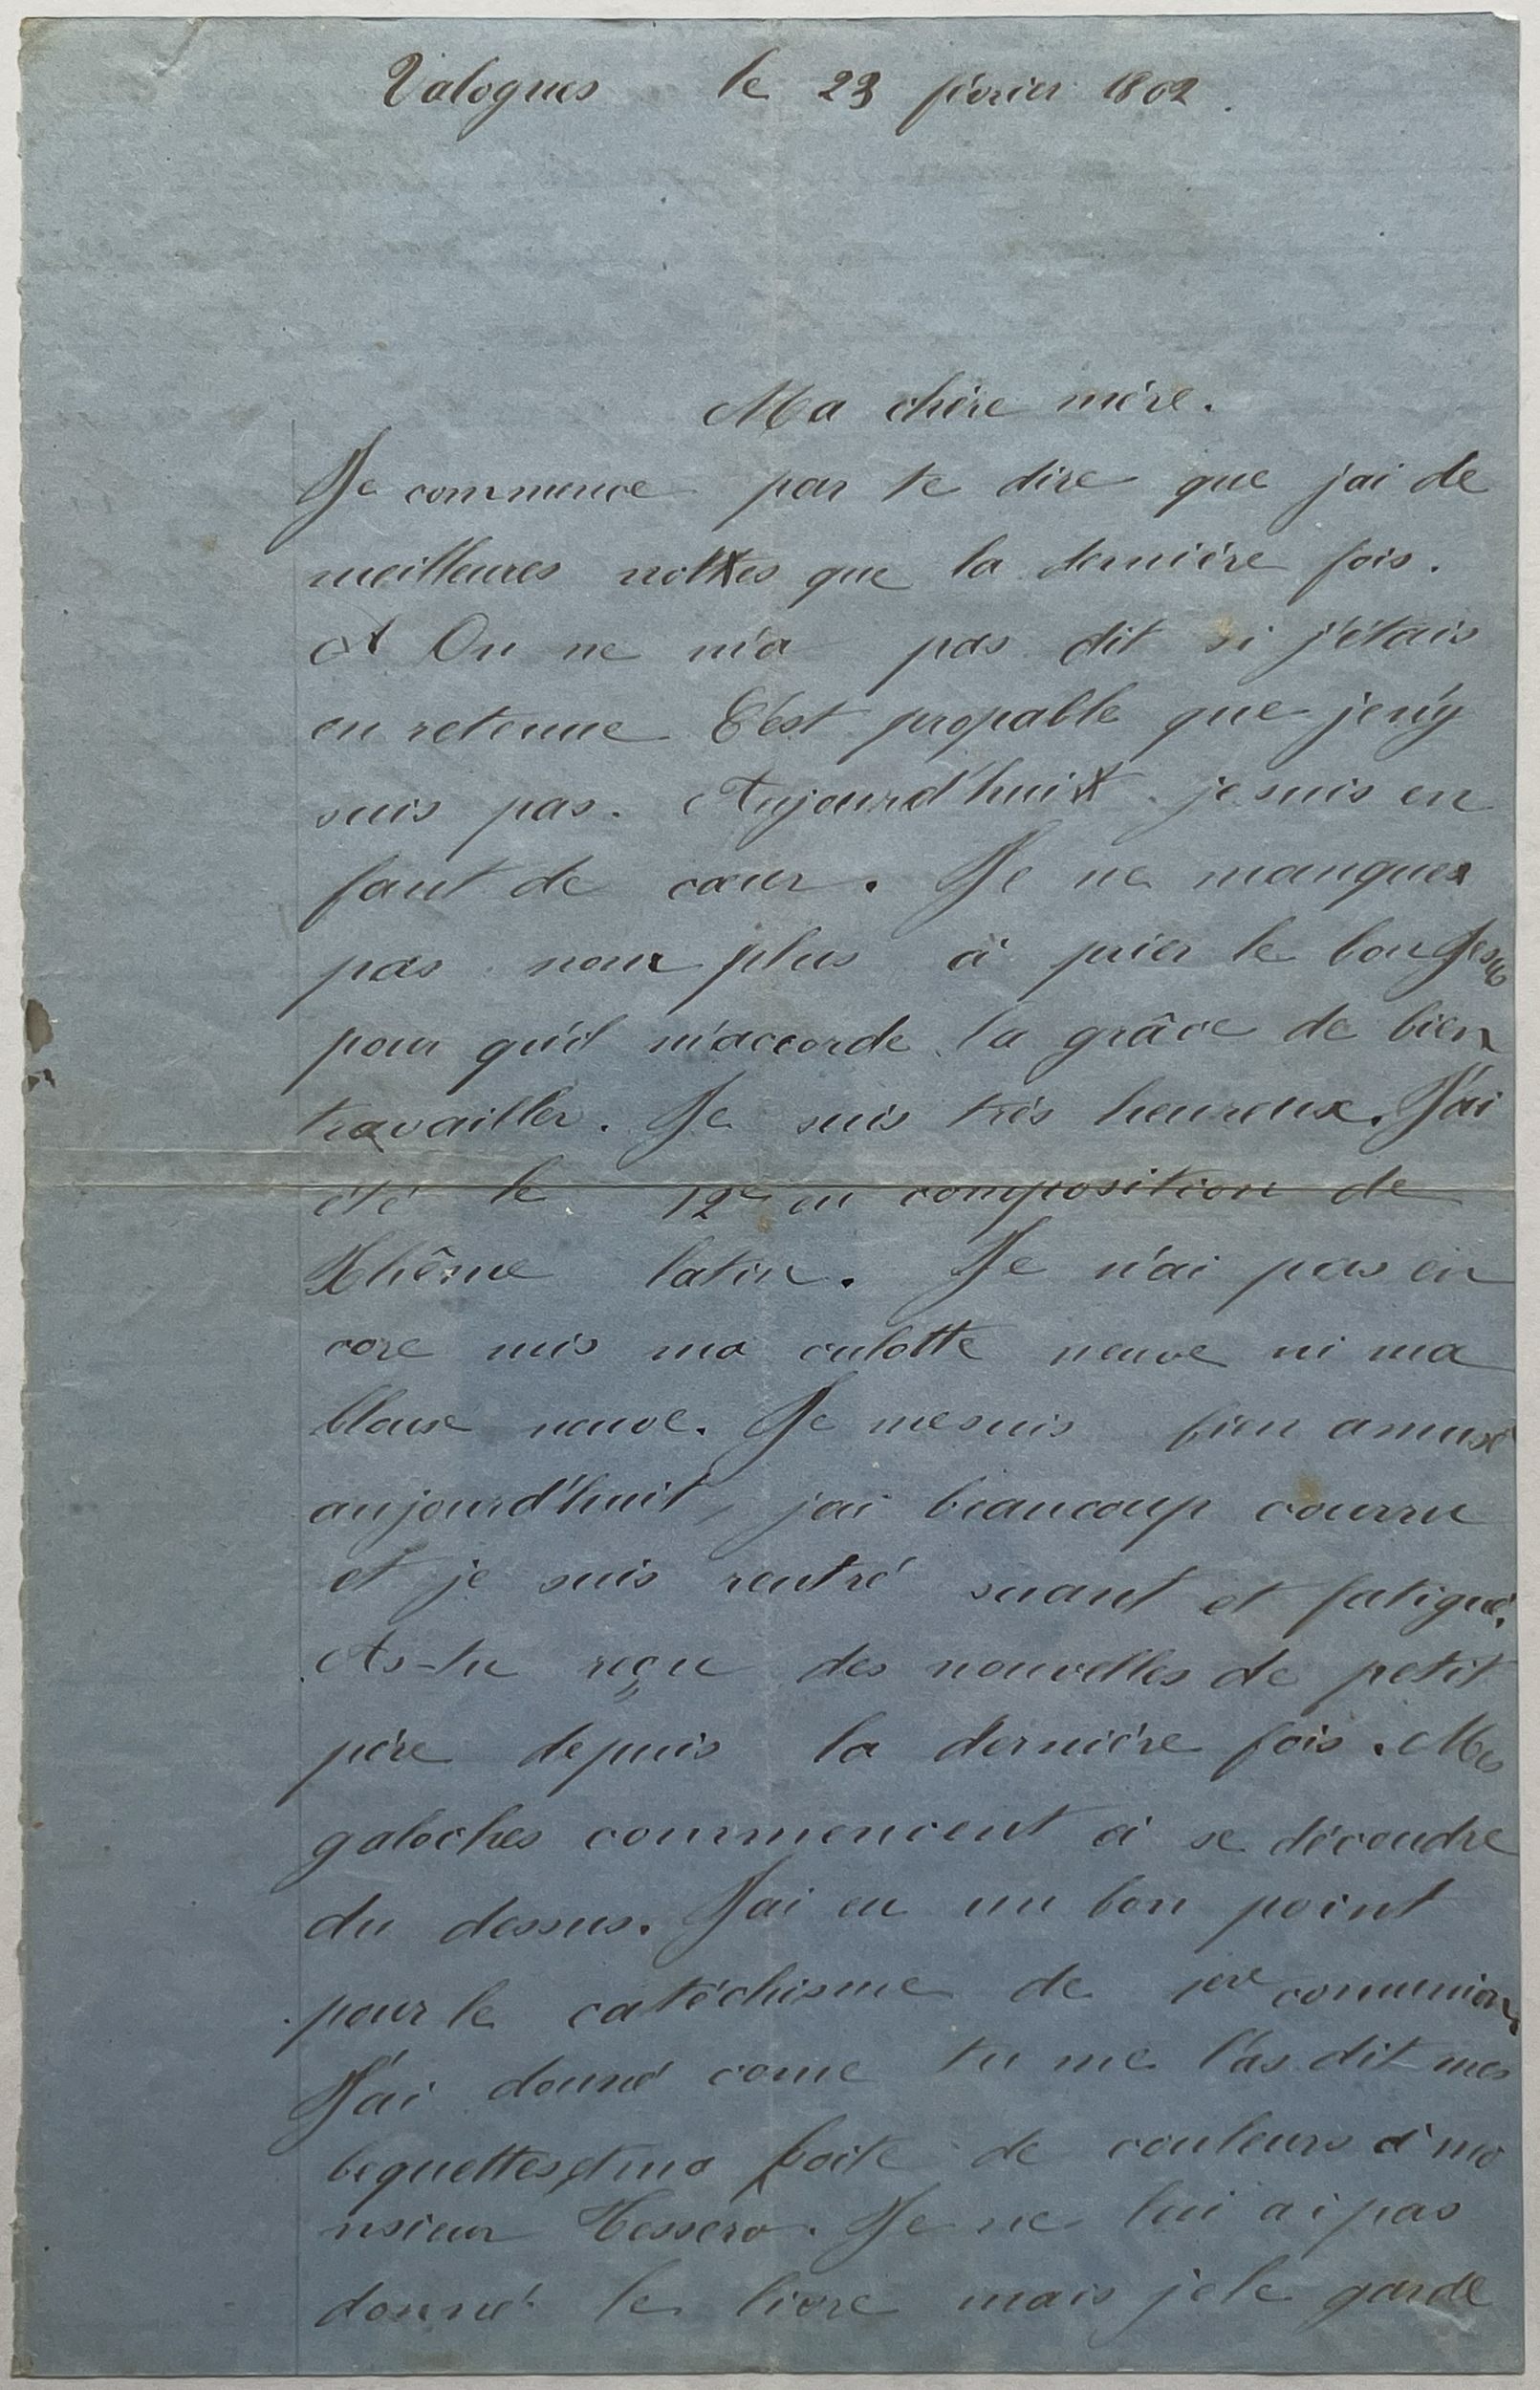 Valognes le 23 février 1802.
Ma chère mère.
Je commence par te dire que j'ai de
meilleures nottes que la dernière fois.
A On ne m'a pas dit si j'étais
en retenue C'est propable que je n'y
suis pas. Aujourd'huit je suis en
faut de cœur. Je ne manques
pas non plus à prier le bon Jesus
pour qu'il m'accorde la grâce de bien
travailler. Je suis très heureux. J'ai
été le 12e en composition de
thême latin. Je n'ai pas en
core mis ma culotte neuve ni ma
blouse neuve. Je me suis bien amusé
aujourd'huit, j'ai beaucoup courru
et je suis rentré suant et fatigué.
As-tu reçu des nouvelles de petit
père depuis la dernière fois. Mes
galoches commencent à se découdre
du dessus. J'ai eu un bon point
pour le catéchisme de 1ere communion,
J'ai donné come tu me l'as dit mes
bequettes et ma boite de couleurs à mo
nsieur . Je ne lui ai pas
donné le livre mais je le garde